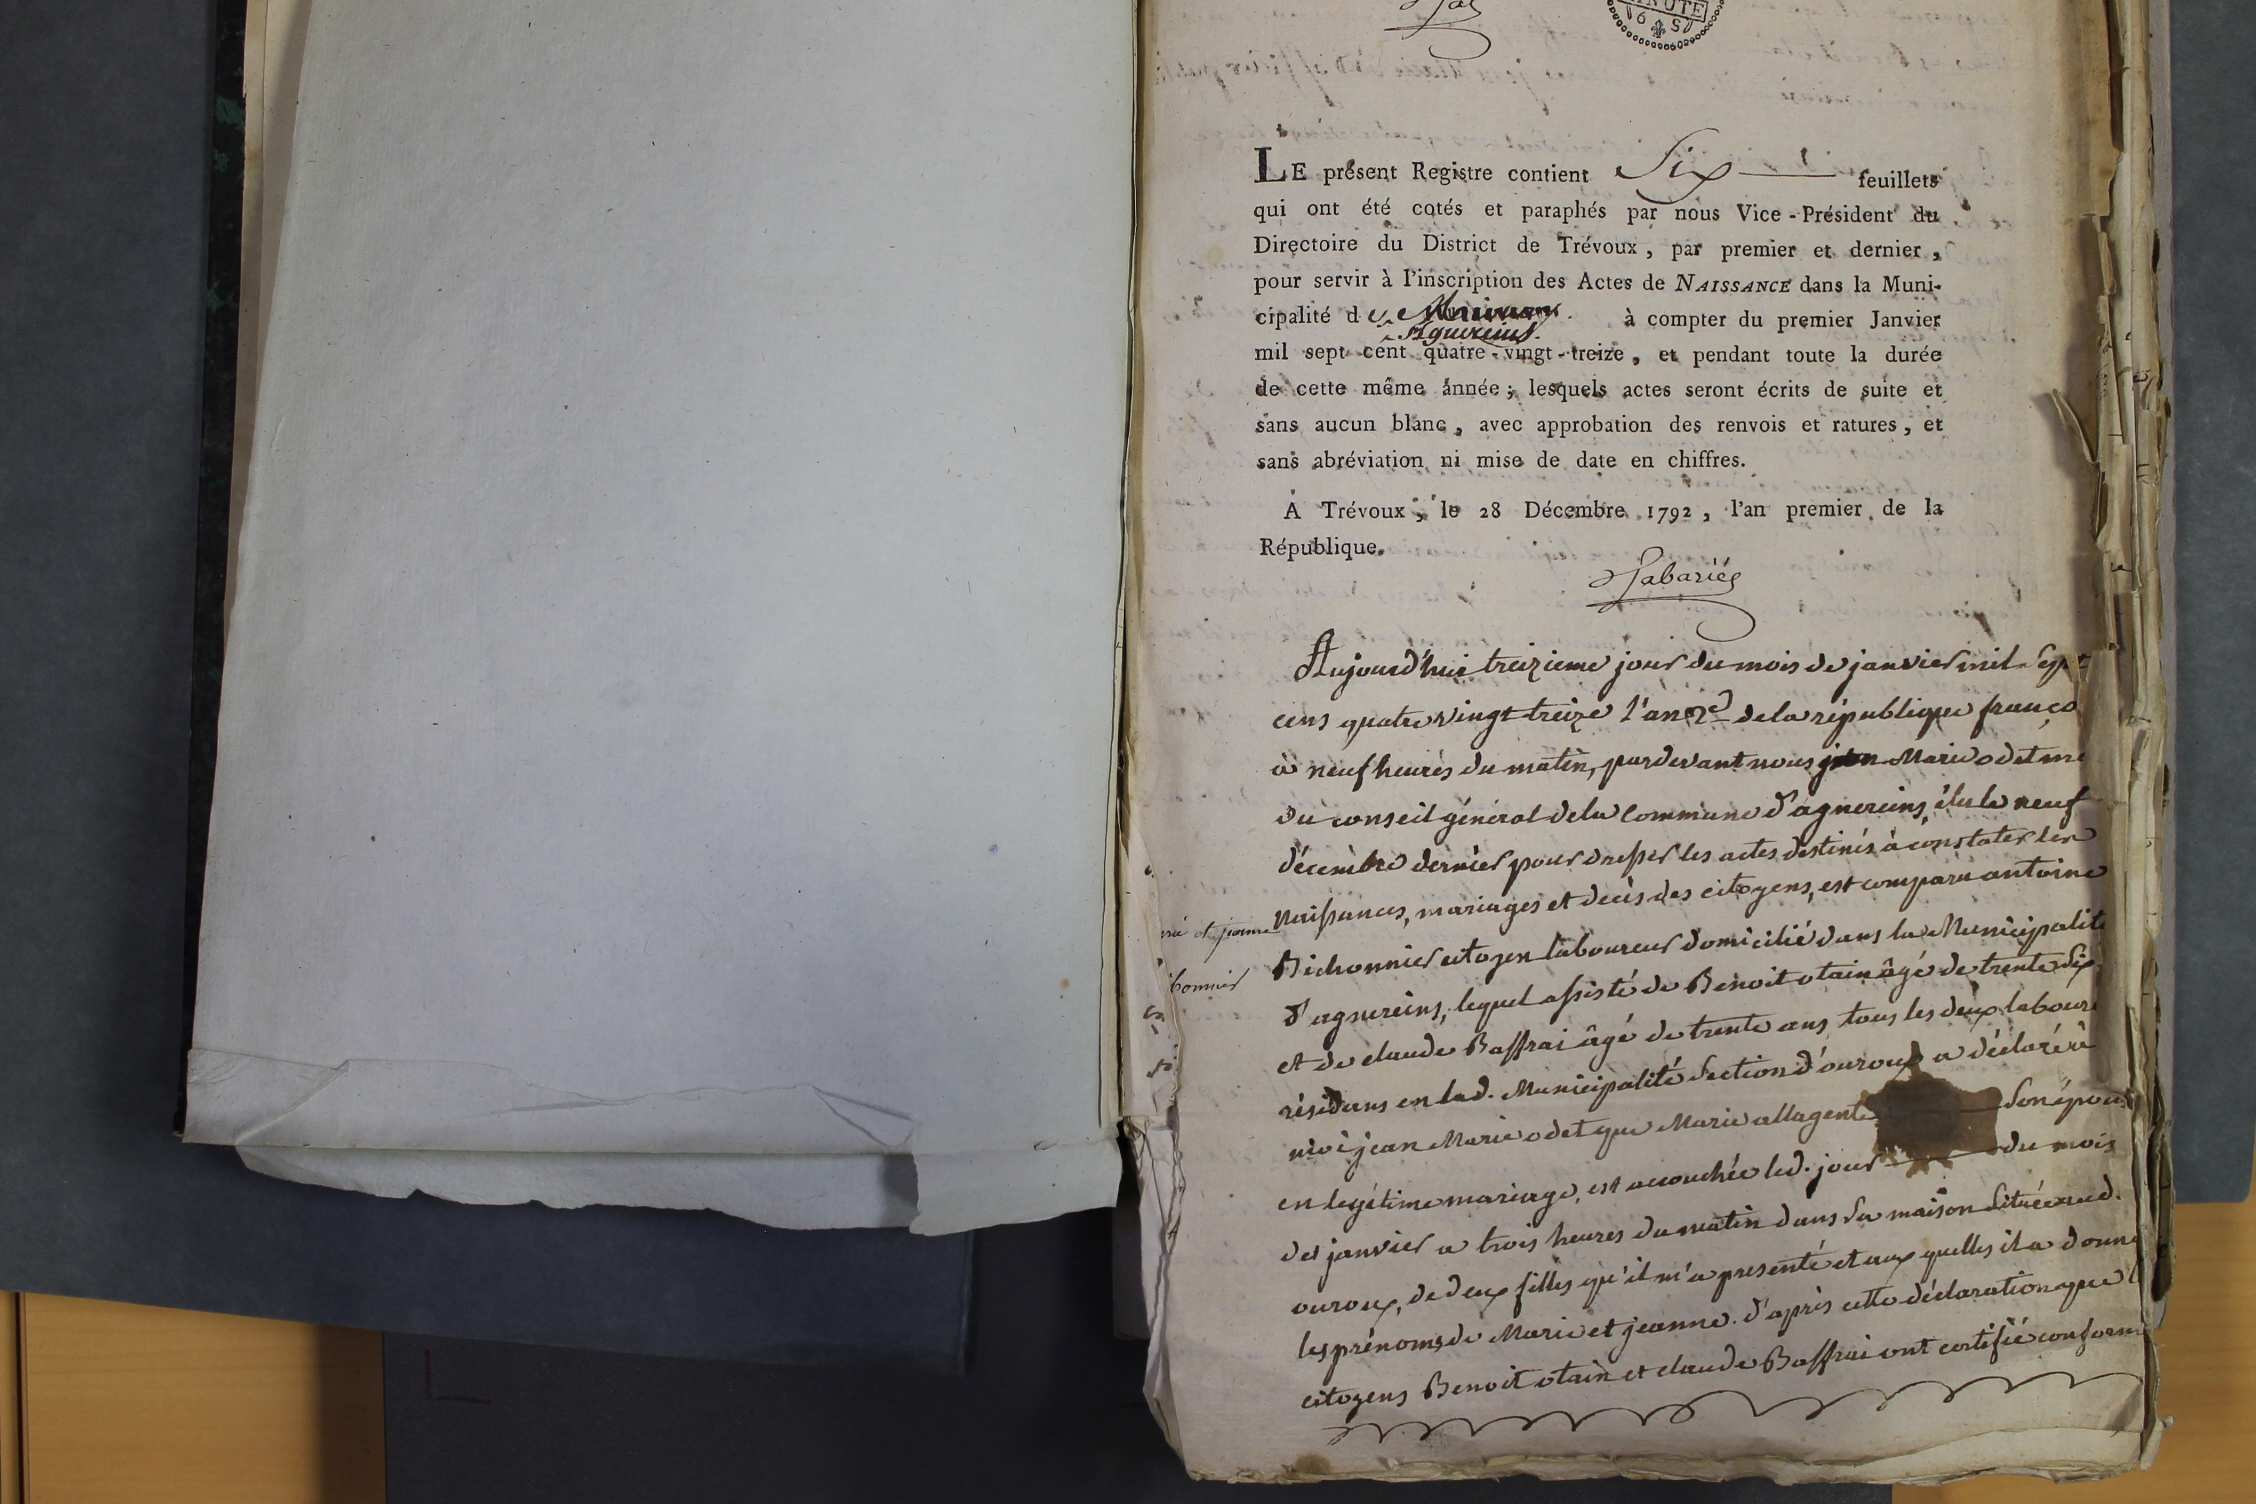 MINUTE
LE présent Registre contient Six feuillets
qui ont été cotés et paraphés par nous Vice-Président du
Directoire du District de Trévoux, par premier et dernier,
pour servir à l'inscription des Actes de NAISSANCE dans la Muni-
cipalité de agnereins. à compter du premier Janvier
mil sept cent quatre-vingt-treize, et pendant toute la durée
de cette même année; lesquels actes seront écrits de suite et
sans aucun blanc, avec approbation des renvois et ratures, et
sans abréviation ni mise de date en chiffres.
A Trévoux, le 28 Décembre 1792, l'an premier de la
République.
Aujourd'hui treizieme jour du mois de janvier mil Sept
cens quatre vingt treize l'an 2d de la république franço
à neuf heures du matin, pardevant nous jean Marie odet me
du conseil général de la Commune d'agnereins, élu le neuf
décembre dernier pour dresser les actes destinés à constater les
Naissances, mariages et decès des citoyens, est comparu antoine
Bichonnier citoyen laboureur domicilié dans la Municipalité
d'agnereins, lequel assisté de Benoit otain âgé de trente Six
et de claude Baffrai âgé de trente ans, tous les deux laboure
résidans en lad. Municipalité Section d'ouroux a déclaré à
moi jean Marie odet que Marie allagente Son épous
en legitime mariage, est accouchée led. jour du mois
de janvier a trois heures du matin dans Sa maison Située aud.
ouroux, de deux filles qu'il m'a presenté et aux quelles il a donné
les prénoms de Marie et jeanne. d'après cette déclaration que l
citoyens Benoit otain et claude Baffrai ont certifié conform